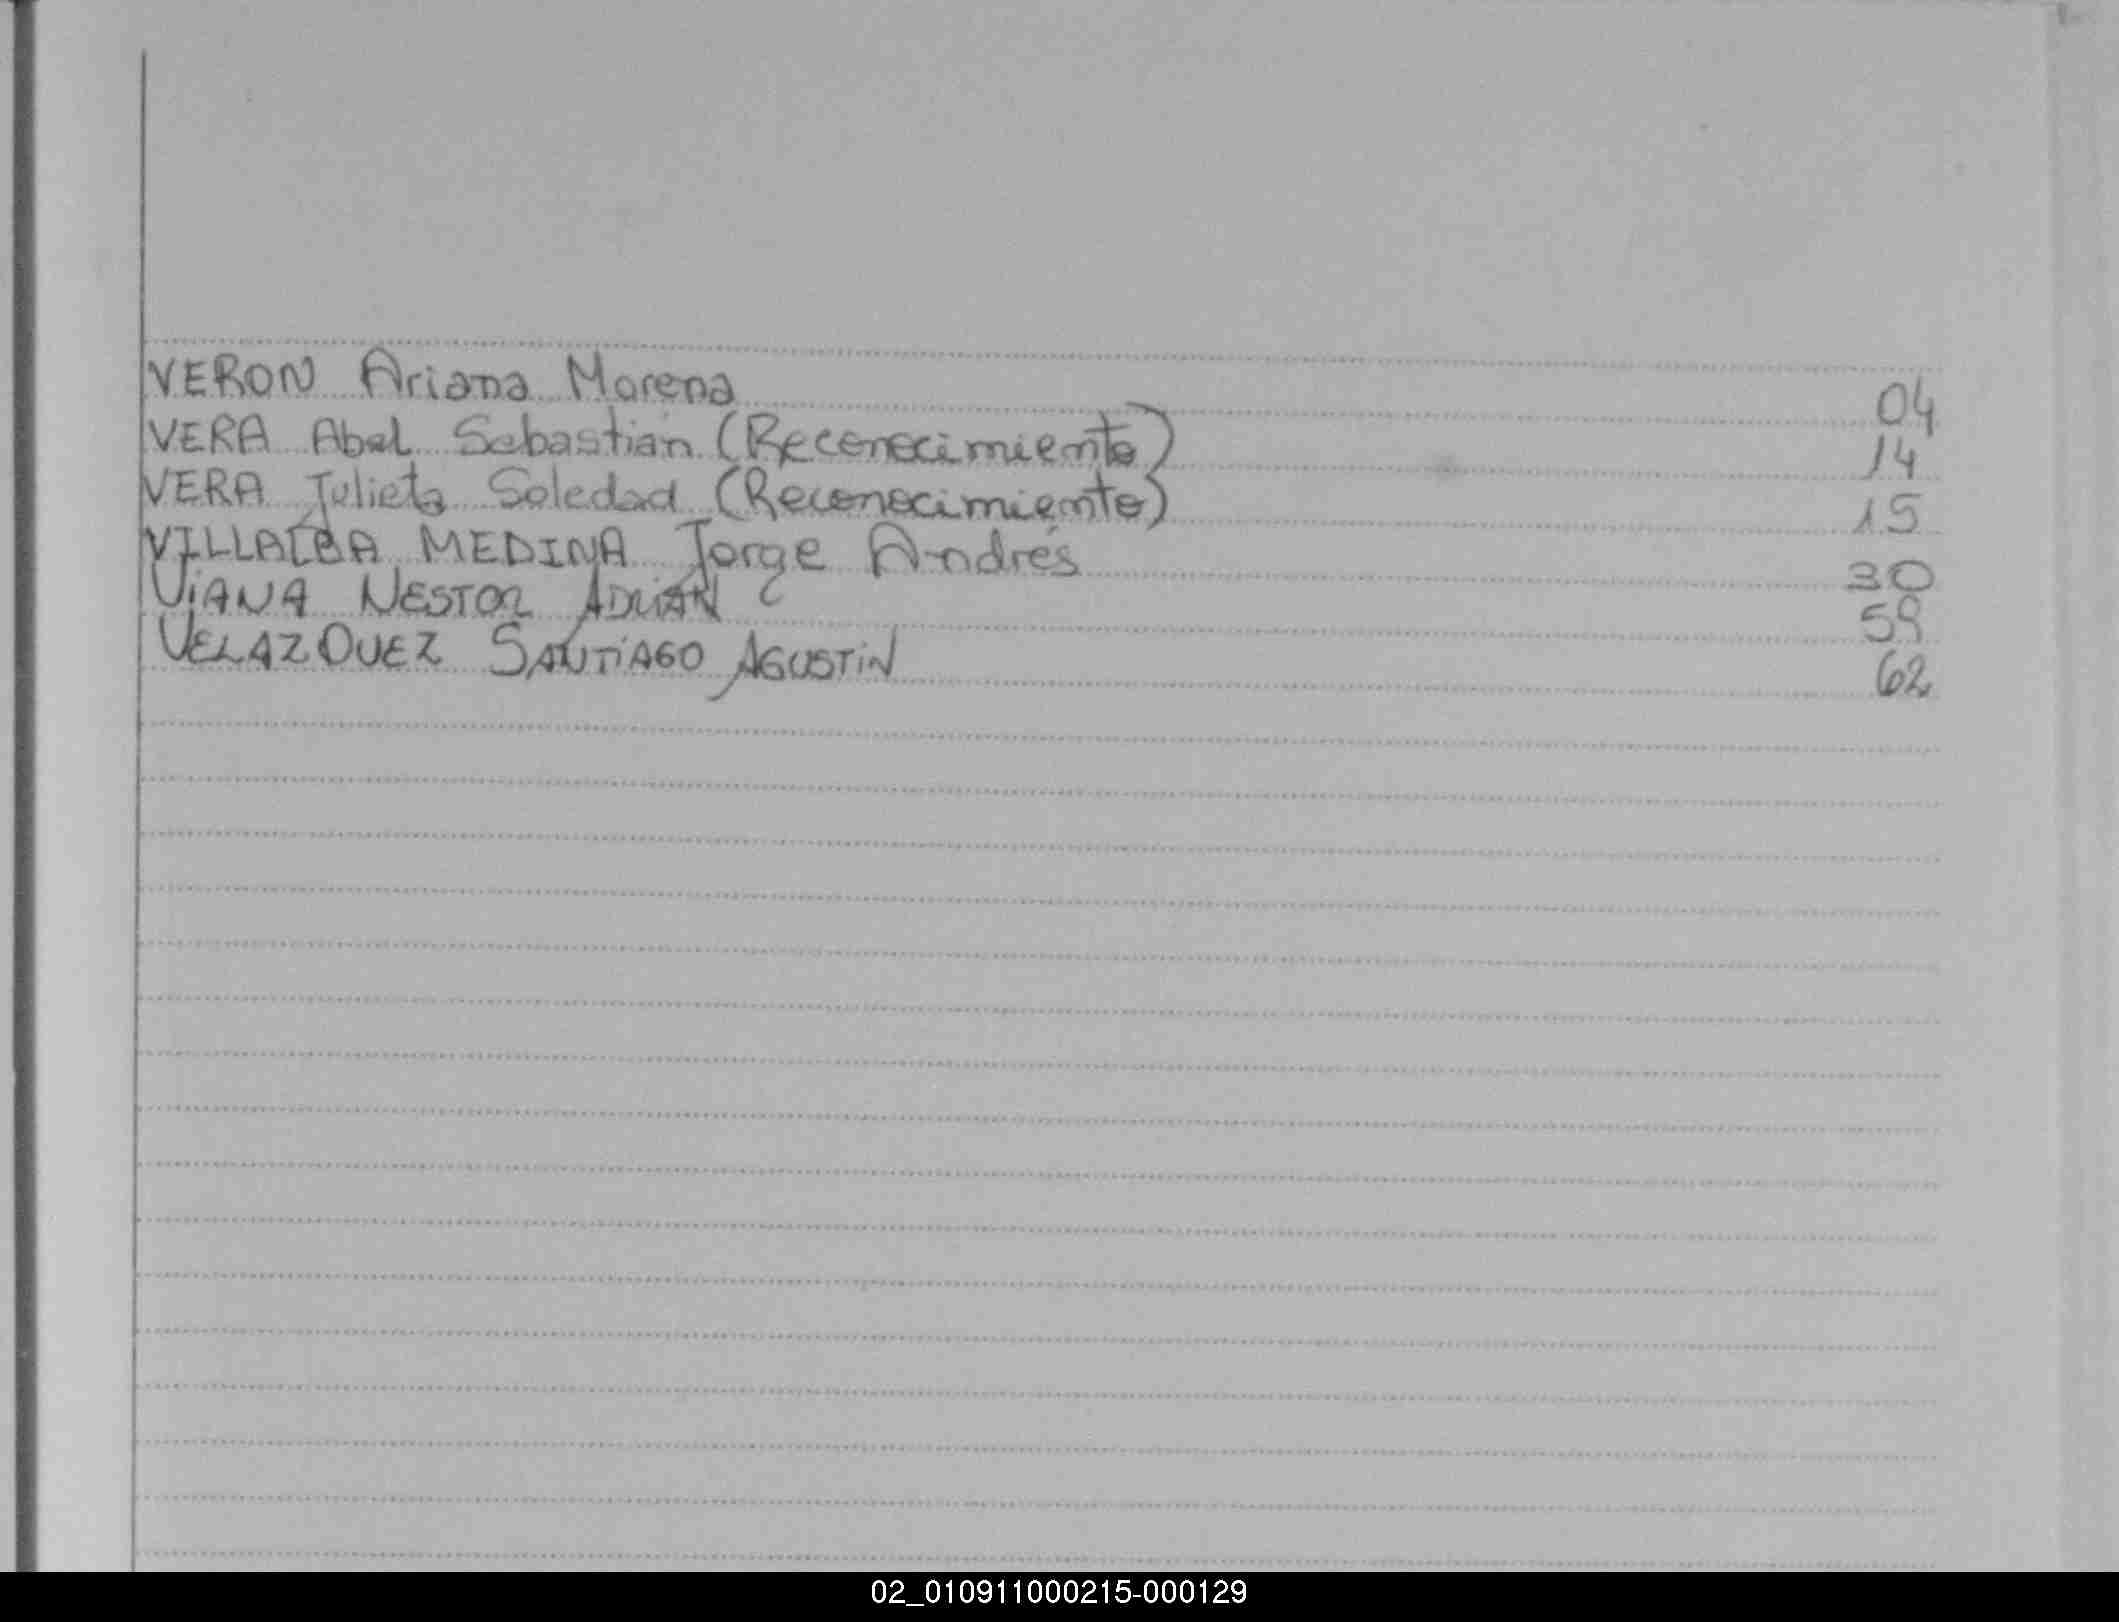 VERON Ariana Morena 04
VERA Abel Sebastian (Reconocimiento) 14
VERA Julieta Soledad (Reconocimiento) 15
VILLALBA MEDINA Jorge Andrés 30
ViANA NESTOR ADRIÁN 59
VELAZQUEZ SANTiAGO AGUSTiN 62
02_010911000215-000129